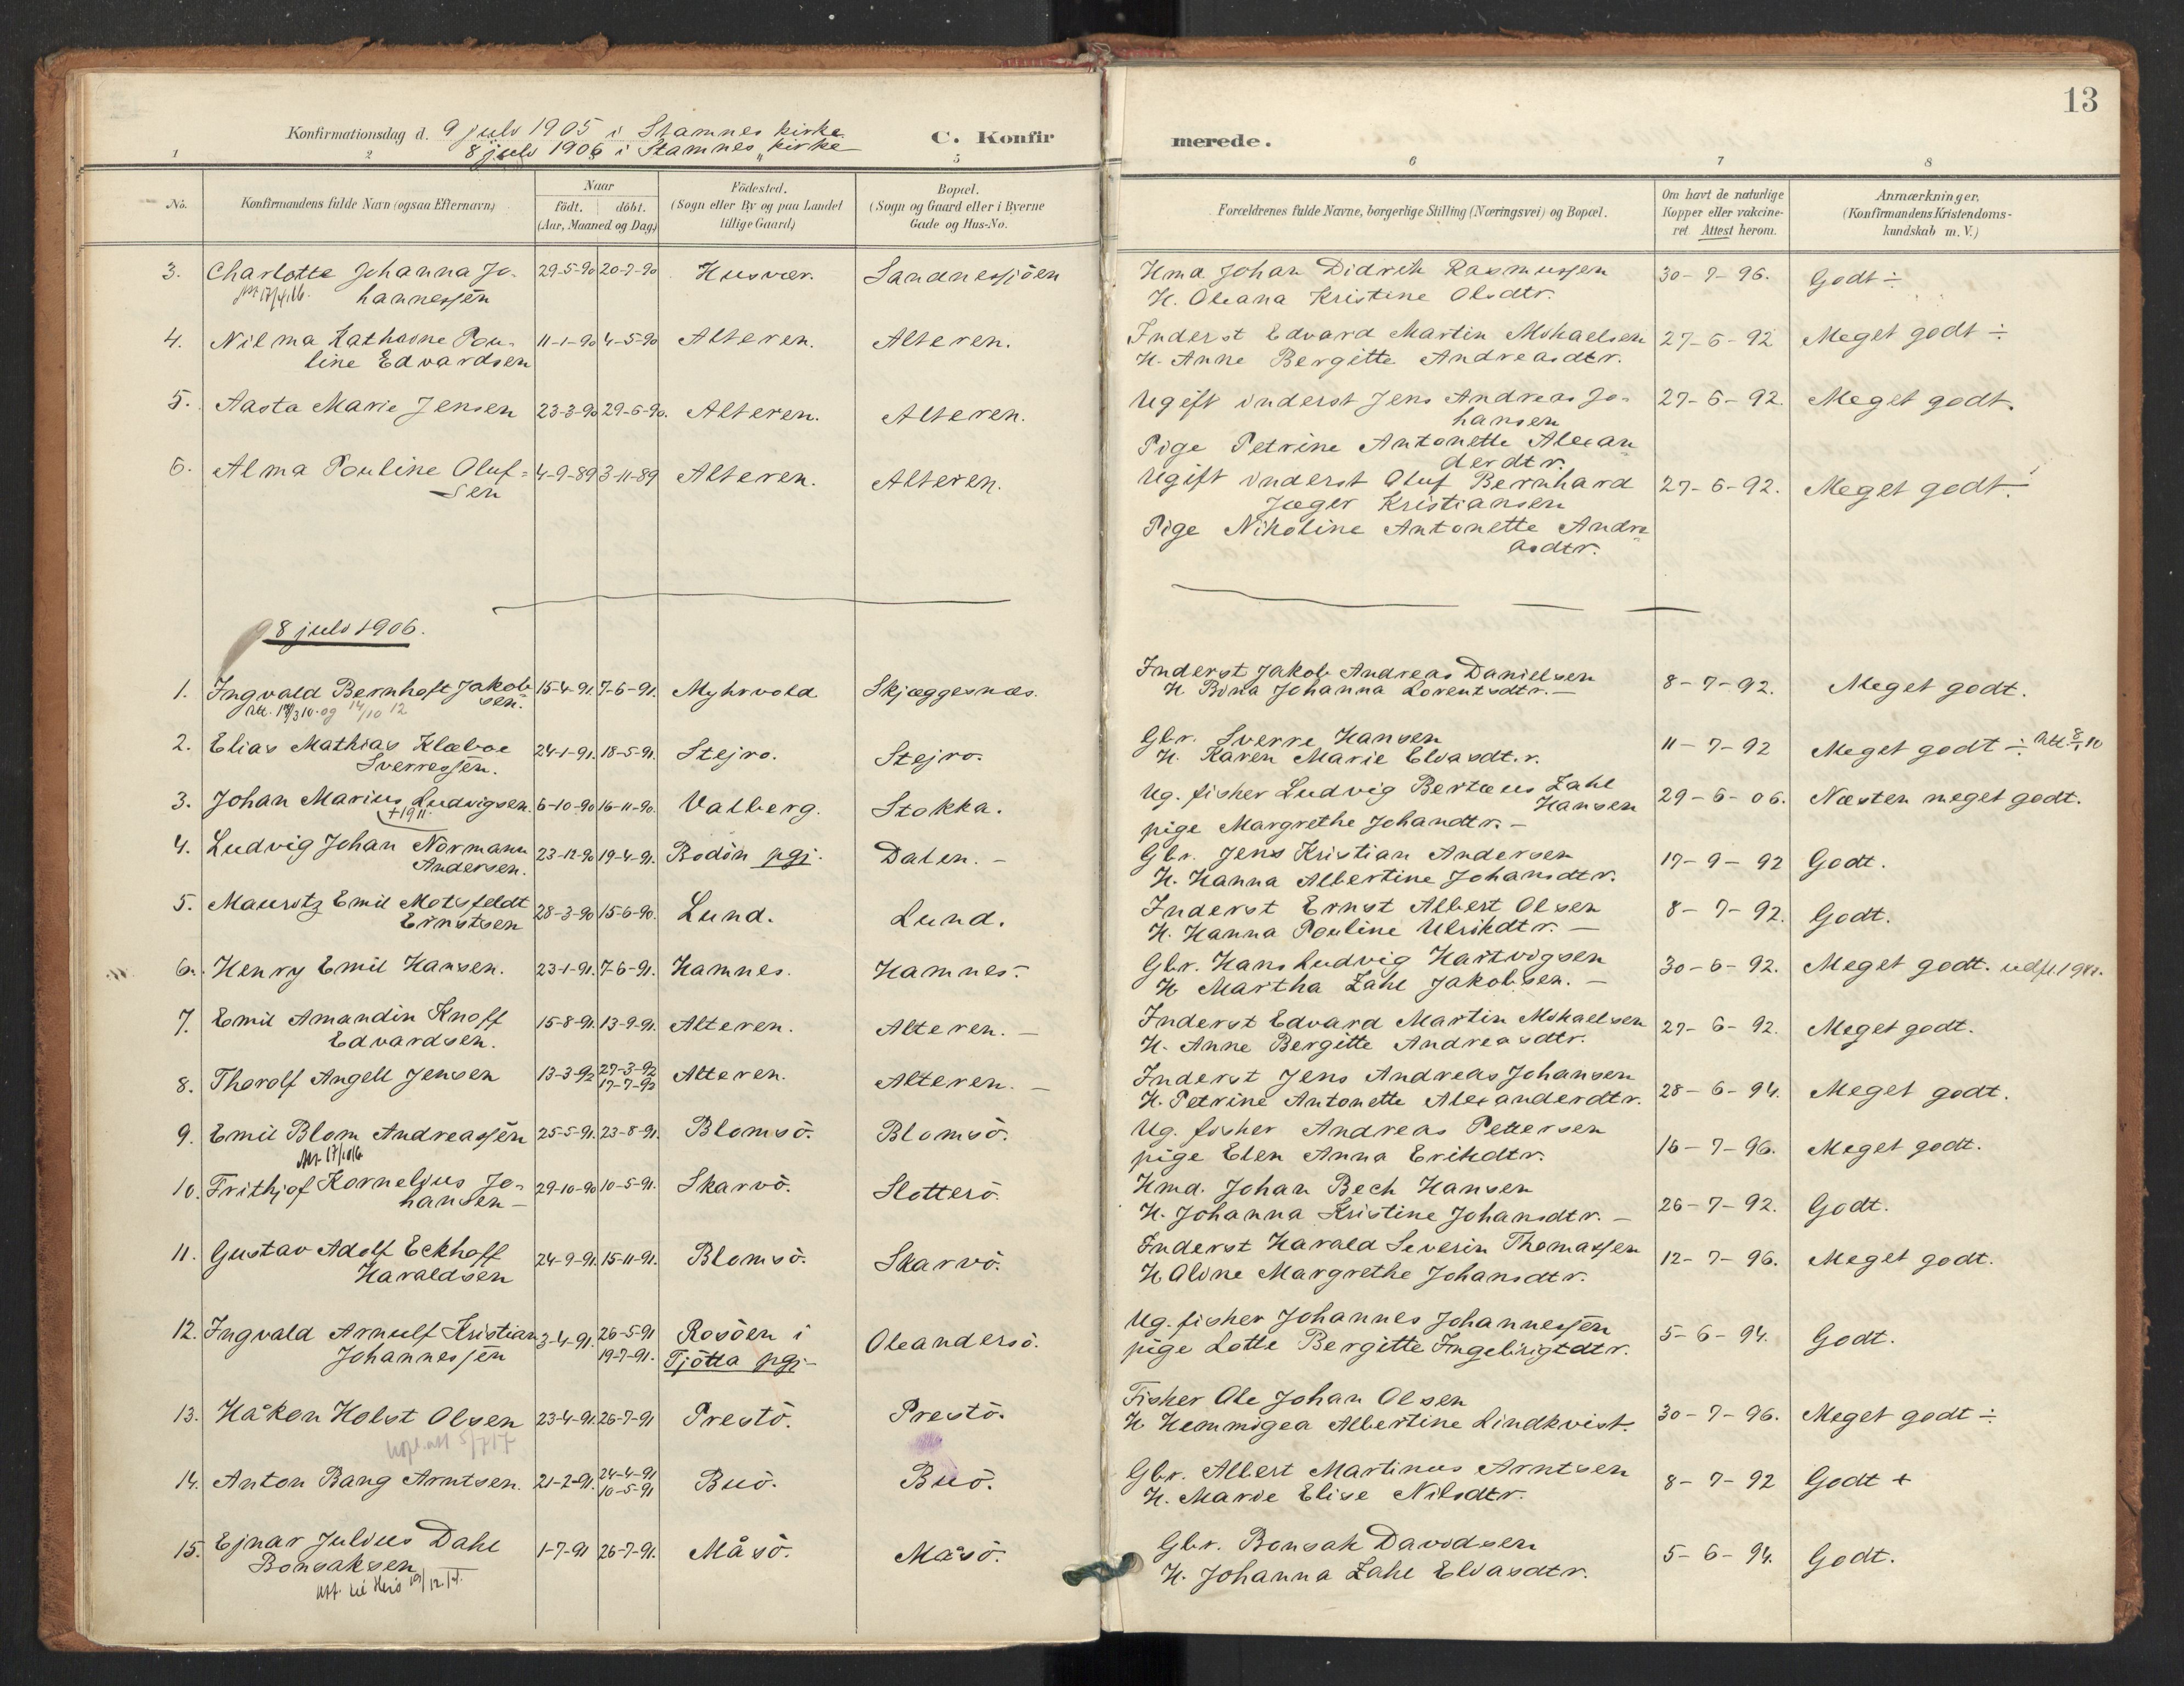 13
Konfirmationsdag d. 9 juli 1905 i Stamnes kirke.
8 juli 1906 i Stamnes kirke
C. Konfir
merede.
1 2 5 6 7 8
No.
Konfirmandens fulde Navn (ogsaa Efternavn)
Naar
födt. döbt.
(Aar, Maaned og Dag)
Födested.
(Sogn eller By og paa Landet
tillige Gaard)
Bopæl.
(Sogn og Gaard eller i Byerne
Gade og Hus-No.
Forældrenes fulde Navne, borgerlige Stilling (Næringsvei) og Bopæl.
Om havt de naturlige
Kopper eller vakcine-
ret Attest herom.
Anmærkninger,
(Konfirmandens Kristendoms-
kundskab m. V.)
3. Charlotte Johanna Jo- 29-5-90 20-7-90 Husvær. Sandnessjöen Hmd Johan Didrik Rasmussen 30-7-96. Godt ÷
17/4.16. hannessen H. Oleana Kristine Olsdtr.
4. Nilma Kathrine Pau- 11-1-90 4-5-90 Alteren. Alteren. Inderst Edvard Martin Mikaelsen 27-6-92 Meget godt ÷
line Edvardsen H. Anne Bergitte Andreasdtr.
5. Aasta Marie Jensen 23-3-90 29-6-90. Alteren. Alteren. Ugift inderst Jens Andreas Jo- 27-6-92. Meget godt.
hansen
Pige Petrine Antonette Alexan
derdtr.
6. Alma Pauline Oluf= 4-9-89 3-11-89 Alteren. Alteren. Ugift inderst Oluf Bernhard 27-6-92. Meget godt.
sen Jæger Kristiansen
Pige Nikoline Antonette Andre
asdtr.
8 juli 1906.
1. Ingvald Bernhoft Jakob= 15-4-91. 7-6-91. Myhrvold Skjæggesnæs. Inderst Jakob Andreas Danielsen 8-7-92. Meget godt.
sen. H. Bina Johanna Lorentsdtr. —
Att. 3/10. og 14/10 12
2. Elias Mathias Klæboe 24-1-91. 18-5-91. Stejro. Stejro. Gbr. Sverre Hansen 11-7-92 Meget godt ÷. Att. 8/1 10
Sverressen. H. Karen Marie Eliasdt.r.
3. Johan Marius Ludvigsen. 6-10-90 16-11-90. Valberg. Stokka. Ug. fisker Ludvig Bertæus Zahl 29-6-06. Næsten meget godt.
+1911. Hansen
pige Margrethe Johandtr. —
4. Ludvig Johan Normann 23-12-90 19-4-91. Bodön pgj. Dalen. — Gbr. Jens Kristian Andersen 17-9-92 Godt.
Andersen. H. Hanna Albertine Johansdtr.
5. Mauritz Emil Motsfeldt 28-3-90 15-6-90. Lund. Lund. Inderst Ernst Albert Olsen 8-7-92. Godt.
Ernstsen H. Hanna Pauline Ulrikdtr. —
6. Henry Emil Hansen. 23-1-91. 7-6-91. Hamnes. Hamnes. Gbr. Hans Ludvig Hartvigsen 30-6-92. Meget godt.
H. Martha Zahl Jakobsen. —
7. Emil Amandin Knoff 15-8-91. 13-9-91. Alteren. Alteren. — Inderst Edvard Martin Mikaelsen 27-6-92. Meget godt.
Edvardsen. H. Anne Bergitte Andreasdtr.
8. Thorolf Angell Jensen 13-3-92 27-3-92 Alteren. Alteren. — Inderst Jens Andreas Johansen 28-6-94. Meget godt.
17-7-92 H. Petrine Antonette Alexanderdtr.
9. Emil Blom Andreassen 25-5-91. 23-8-91. Blomsö. Blomsö. Ug. fisker Andreas Pettersen 16-7-96. Meget godt.
pige Elen Anna Erikdtr.
10. Frithjof Kornelius Jo- 29-10-90 10-5-91. Skarvö. Slotterö. Hmd. Johan Bech Hansen 26-7-92. Godt.
hansen — H. Johanna Kristine Johansdtr. —
11. Gustav Adolf Eckhoff 24-9-91. 15-11-91. Blomsö. Skarvö. Inderst Harald Severin Thomassen 12-7-96. Meget godt.
Haraldsen H. Oline Margrethe Johansdtr.
12. Ingvald Arnulf Kristian 3-4-91. 26-5-91 Rosöen i Oleandersö. Ug. fisker Johannes Johannessen 5-6-94. Godt.
Johannessen 19-7-91. Tjötta pgj- pige Lotte Bergitte Ingebrigtdtr.
13. Håkon Holst Olsen 23-4-91. 26-7-91 Prestö. Prestö. Fisker Ole Johan Olsen 30-7-96. Meget godt ÷
H. Hemmigea Albertine Lindkvist.
14. Anton Bang Arntsen. 21-2-91. 24-4-91 Buö. Buö. Gbr. Albert Martinus Arntsen 8-7-92 Godt +
10-5-91 H. Marie Elise Nilsdtr.
15. Ejnar Julius Dahl 1-7-91 26-7-91. Måsö. Måsö. Gbr. Bonsak Davidsen 5-6-94. Godt.
Bonsaksen H. Johanna Zahl Eliasdtr.